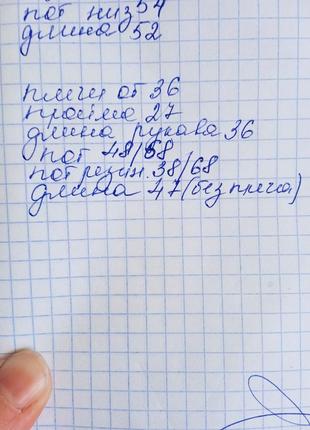 пот низ 54
длина 52
плечи от 36
пройма 27
длина рукава 36
пот 48/58
пот резин. 38/68
длина 47 (без плеча)